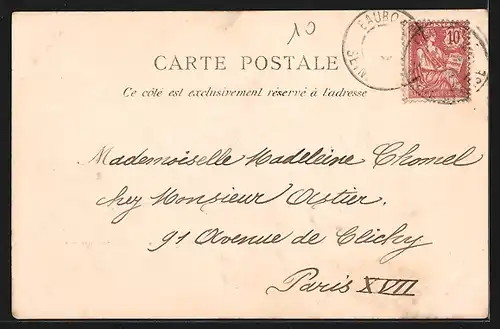 10
EAUBO
SEINE
10
CARTE POSTALE
Ce côté est exclusivement réservé à l'adresse
Mademoiselle Madeleine Chomel
chez Monsieur Astier
91 Avenue de Clichy
Paris XVII